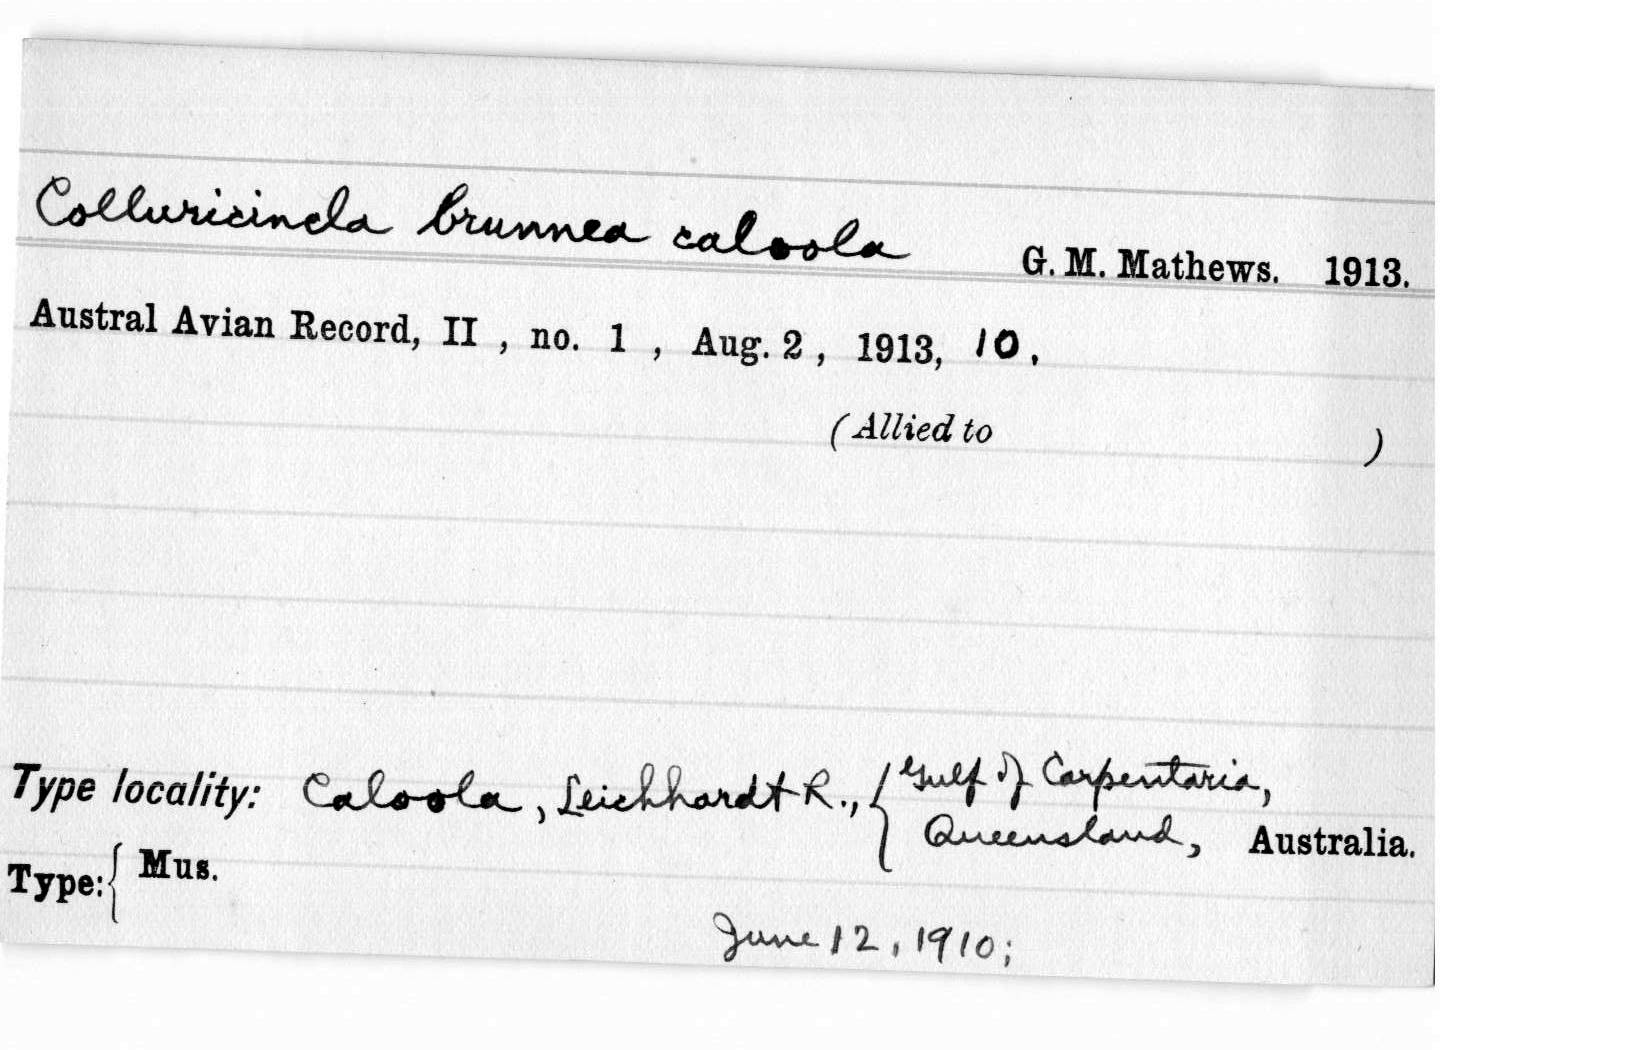 Colluricincla brunnea caloola G. M. Mathews. 1913.
Austral Avian Record, II , no. 1 , Aug. 2 , 1913, 10.
(Allied to )
Type locality: Caloola, Leichhardt R., { Gulf of Carpentaria,
Queensland, Australia.
Type: { Mus.
June 12, 1910;